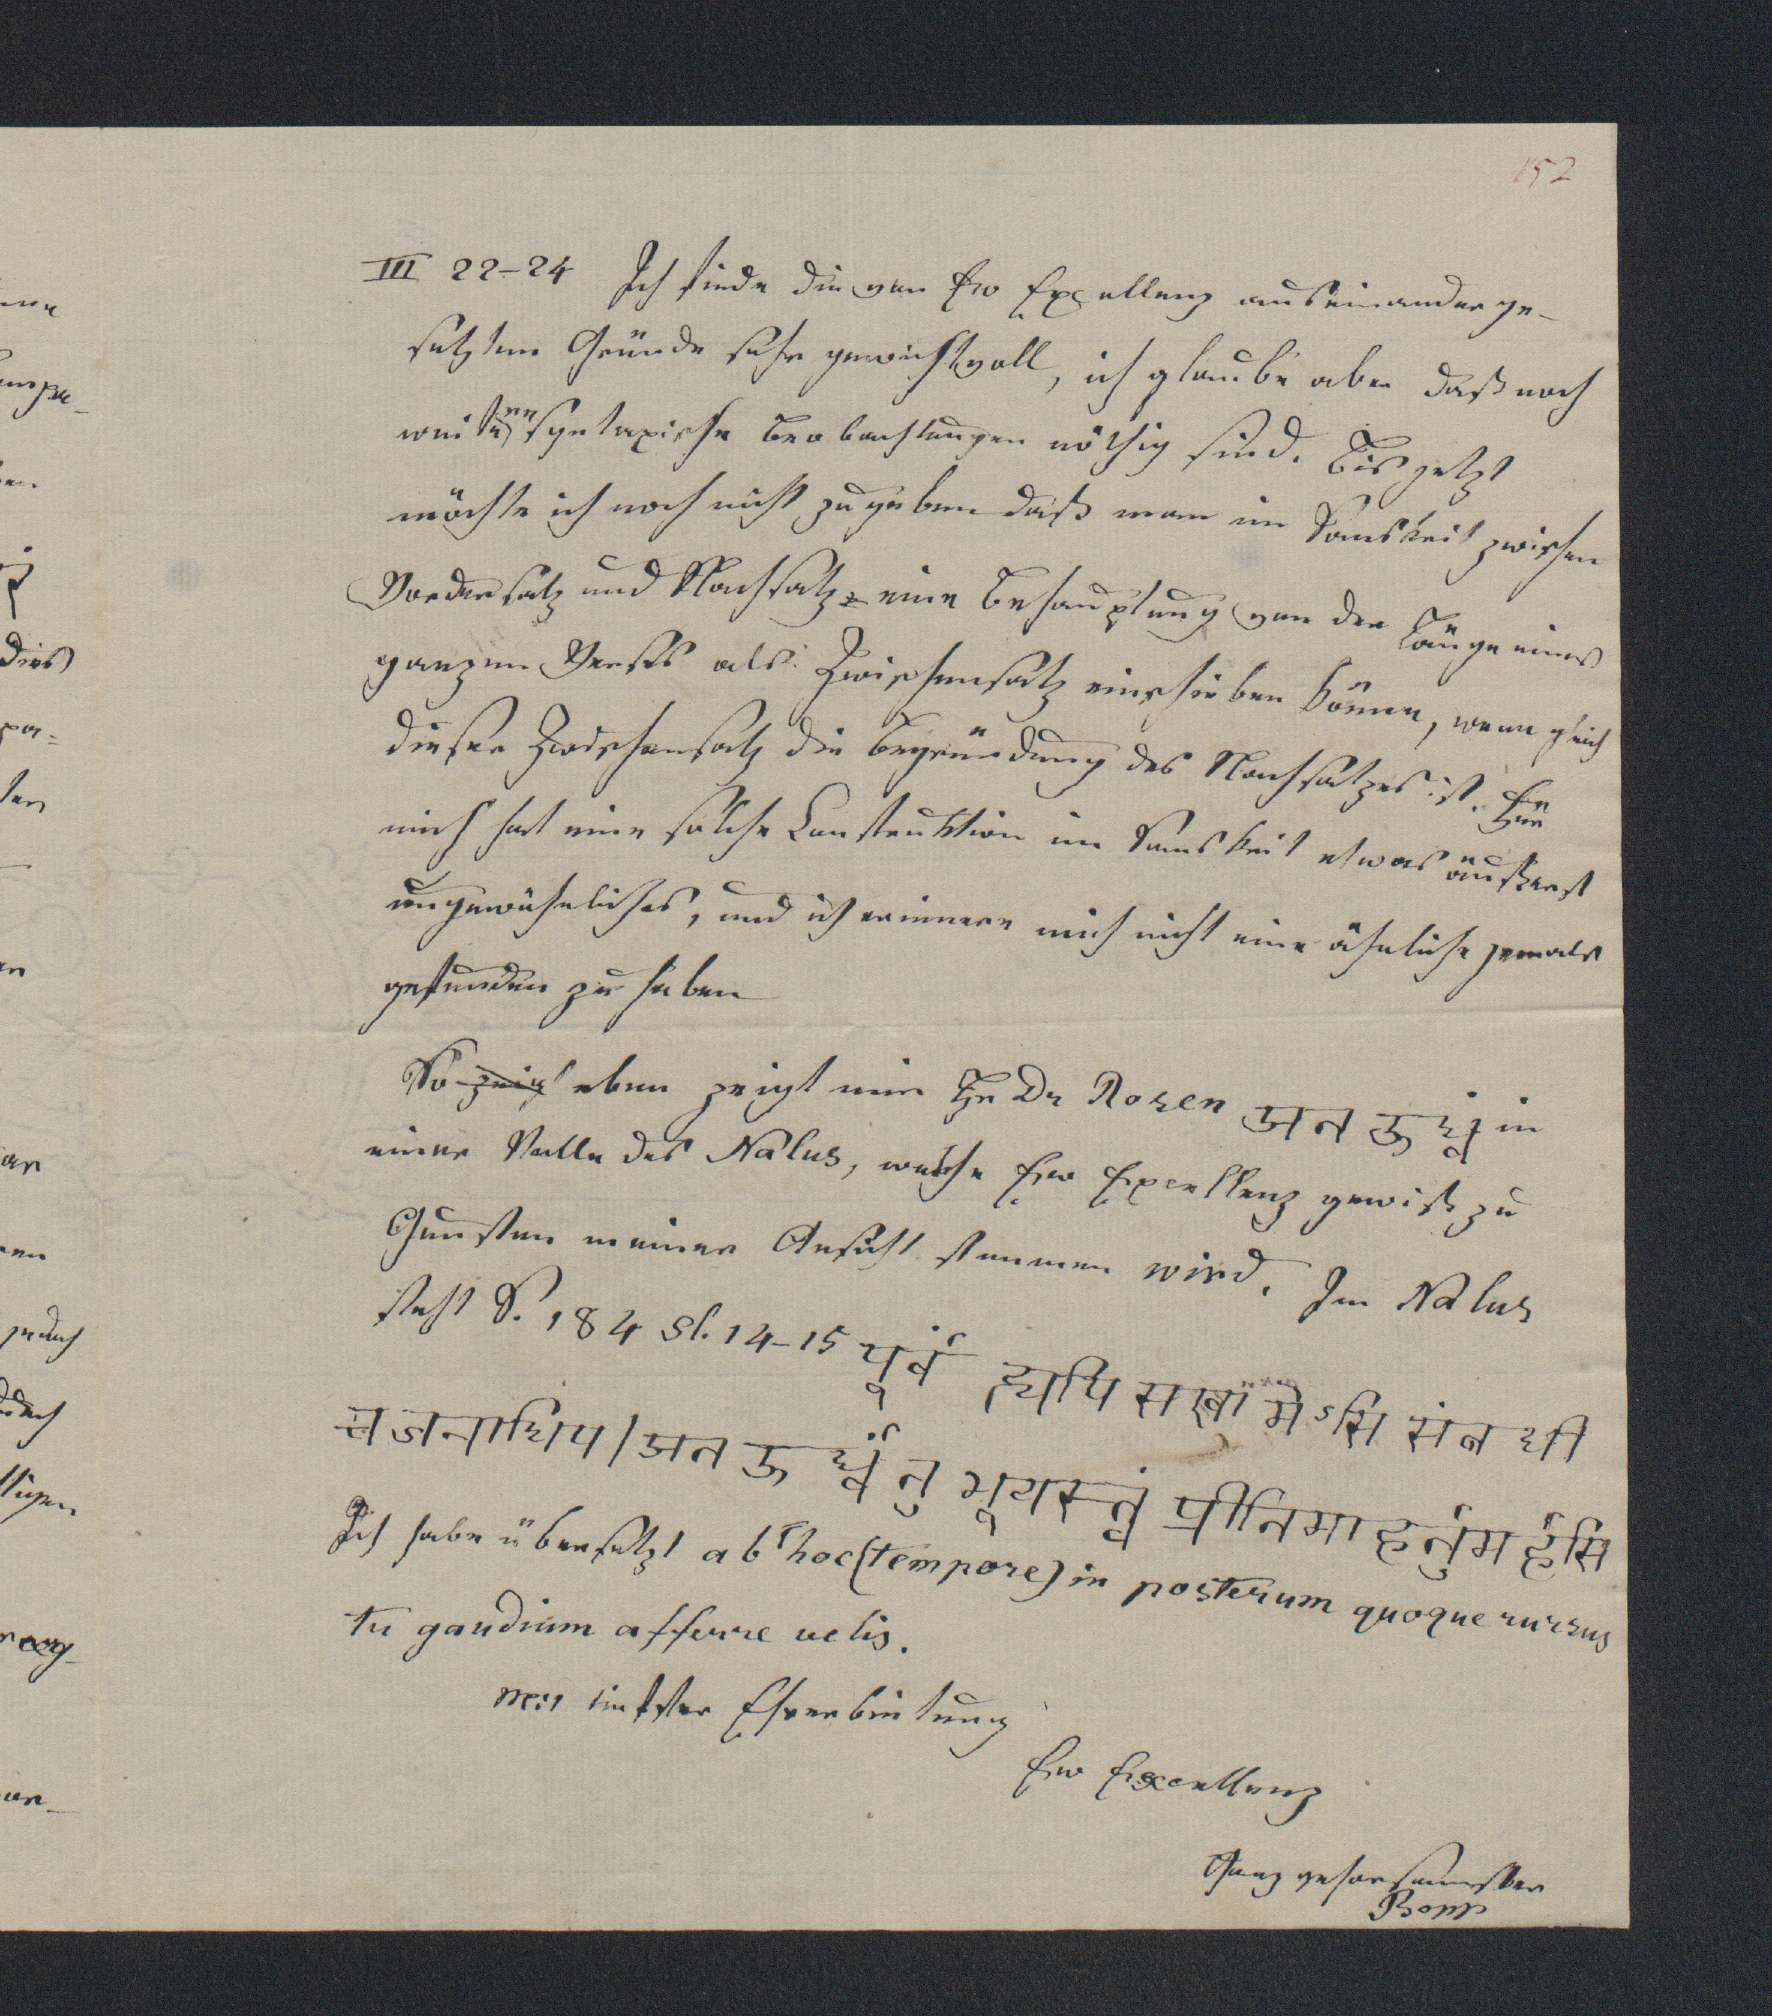 152
III 22–24 Ich finde die von Ew Excellenz auseinanderge-
setzten Gründe sehr gewichtvoll, ich glaube aber daß noch
weitere syntaxische Beobachtungen nöthig sind. Bis jetzt
möchte ich noch nicht zugeben daß man im Sanskrit zwischen
Vordersatz und Nachsatz eine Behauptung von der Länge eines
ganzen Verses als Zwischensatz einschieben könne, wenn gleich
dieser Zwischensatz die Begründung des Nachsatzes ist. Für
mich hat eine solche Construktion im Sanskrit etwas äußerst
ungewöhnliches, und ich erinnere mich nicht eine ähnliche jemals
gefunden zu haben
So zeigt eben zeigt mir Hr Dr Rosen अत ऊर्ध्वं in
einer Stelle des Nalus, welche Ew Excellenz gewiß zu
Gunsten meiner Ansicht stimmen wird. Im Nalus
steht S. 184 Sl. 14–15 पूर्वं ह्यपि सखा मे ऽसि संबन्धी
च जनाधिप। अत ऊर्ध्वं तु भूयस्त्वं प्रीतिमाहर्तुमर्हसि
Ich habe übersetzt ab hoc (tempore) in posterum quoque rursus
tu gaudium afferre velis.
Mit tiefster Ehrerbietung
Ew Excellenz
Ganz gehorsamster
Bopp
dies
jedoch